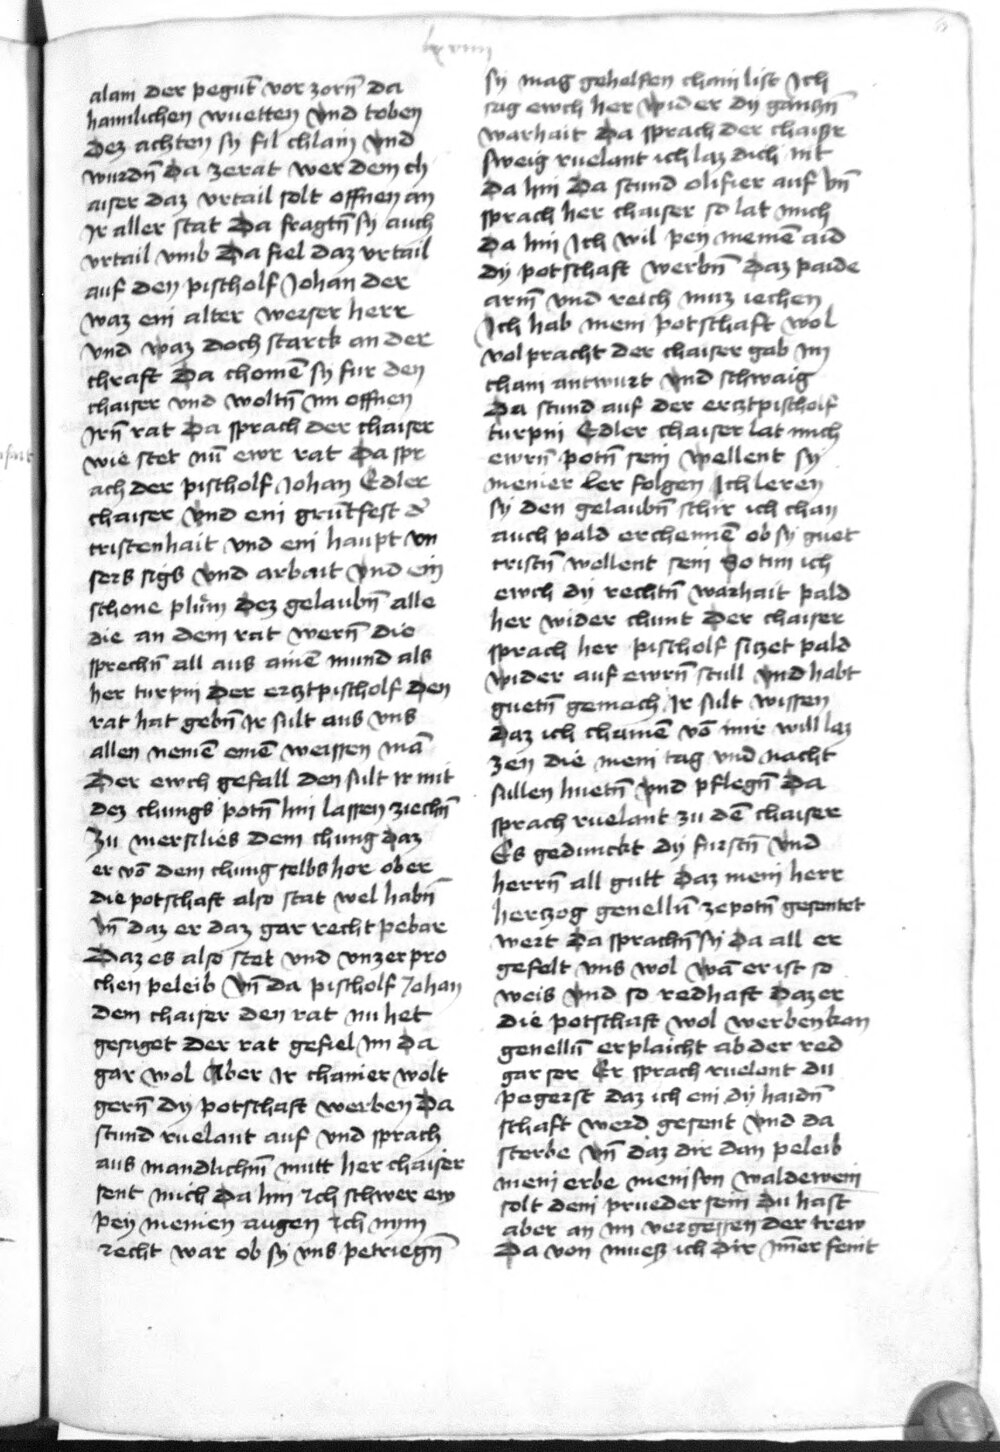 lxviiii
69
alain der pegūt vor zorn̄ da
haimlichen wuetten vnd toben
dez achten sy fil chlain vnd
wurdn̄ Da zerat wer dem ch
aiser daz vrtail solt offnen an
Jr aller stat Da fragtn̄ sy auch
vrtail vmb Da fiel daz vrtail
auf den pischolf Johan der
waz ein alter weiser herr
vnd waz doch starck an der
chraft Da chomē sy fur den
chaiser vnd woltn̄ im offnen
Jrn̄ rat Da sprach der chaiser
wie stet nu̅ ewr rat Da spr
ach der pischolf Johan Edler
chaiser vnd ein gru̅tfest d̕
cristenhait vnd ein haupt vn
sers sigs vnd arbait vnd ein
schone plům dez gelaubn̄ alle
die an dem rat wern̄ die
sprechn̄ all aus ainē mund als
her turpin der ercztpischolf den
rat hat gebn̄ Jr sult aus vns
allen nemē einē weissen mā
Der ewch gefall den sult ir mit
dez chungs potn̄ hin lassen ziechn̄
Zu mersilies dem chung daz
er vō dem chung selbs hor ober
die potschaft also stat wel habn̄
vn̄ daz er daz gar recht pebar
Daz es also stet vnd vnzerpro
chen peleib Vn̄ da pischolf Johan
dem chaiser den rat nu het
gesaget der rat gefiel im Da
gar wol Aber Jr chainer wolt
gern̄ dy potschaft werben Da
stund ruelant auf vnd sprach
aus mandlichm̄ mutt her chaiser
sent mich Da hin Ich schwer ew
pey meinen augen Ich nym
recht war ob sy vns petriegn̄
sy mag gehelffen chain list Ich
sag ewch her wider dy ganczn̄
warhait Da sprach der chaiser
sweig ruelant ich laz dich nit
Da hin Da stund olifier auf vn̄
sprach her chaiser so lat mich
Da hin Ich wil pey meinē aid
dy potschaft werbn̄ Daz paide
arm̄ vnd reich muz iechen
Ich hab mein potschaft wol
volpracht der chaiser gab im
chain antwurt vnd schwaig
Da stund auf der ercztpischolf
turpin Edler chaiser lat mich
ewrn̄ potn̄ sein Wellent sy
meiner ler folgen Ich leren
sy den gelaubn̄ schir ich chan
auch pald erchennē ob sy guet
cristn̄ wellent sein So tun ich
ewch dy rechtn̄ warhait pald
her wider chunt Der chaiser
sprach her pischolf siczet pald
wider auf ewrn̄ stull vnd habt
guetn̄ gemach Jr sult wissen
Daz ich chainē vō mir will laz
zen die mein tag vnd nacht
sullen huetn̄ vnd pflegn̄ Da
sprach ruelant zu dē chaiser
Es gedunckt dy furstn̄ vnd
herrn̄ all gutt Daz mein herr
herczog genellu̅ ze potn̄ gesentet
wert Da sprachn̄ sy Da all er
gefelt vns wol wā er ist so
weis vnd so redhaft daz er
die potschaft wol werben kan
genellu̅ erplaicht ab der red
gar ser Er sprach ruelant du
pegerst daz ich ein dy haidn̄
schaft werd gesent vnd da
sterbe vn̄ daz dir dan peleib
mein erbe mein sun waldewein
solt dein prueder sein Du hast
aber an im vergessen der trew
Da von muesz ich dir ym̄er feint